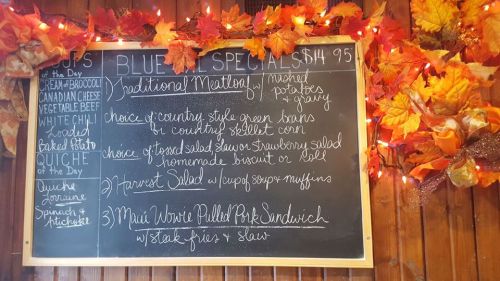 of the Day
CREAM of BROCCOLI
CANADIAN CHEESE
VEGETABLE BEEF
WHITE CHILI
Loaded
Baked Potato
QUICHE
of the Day
Quiche
Lorraine
Spinach &
Artichoke
SPECIALS $14 95
1) Traditional Meatloaf w/ mashed
potatoes
& gravy
choice of country style green beans
or country skillet corn
choice of tossed salad, slaw or strawberry salad
homemade biscuit or roll
2) Harvest Salad w/ cup of soup & muffins
3) Maui Wowie Pulled Pork Sandwich
w/ steak fries & slaw